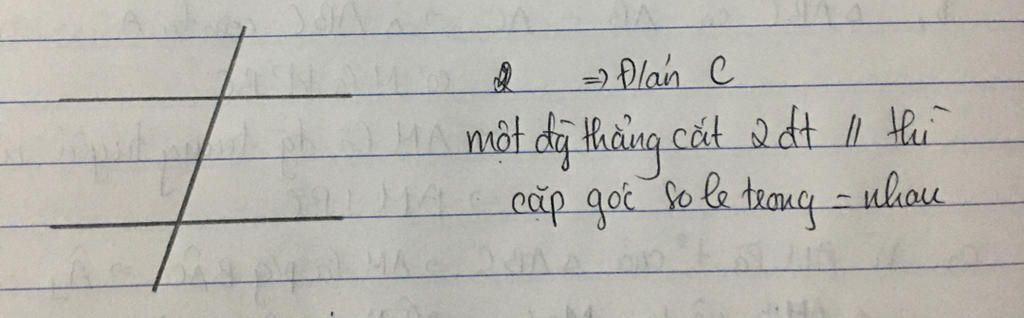 2 => Đ/án C
một đg̃ thẳng cắt 2 đt // thì
cặp góc so le trong = nhau